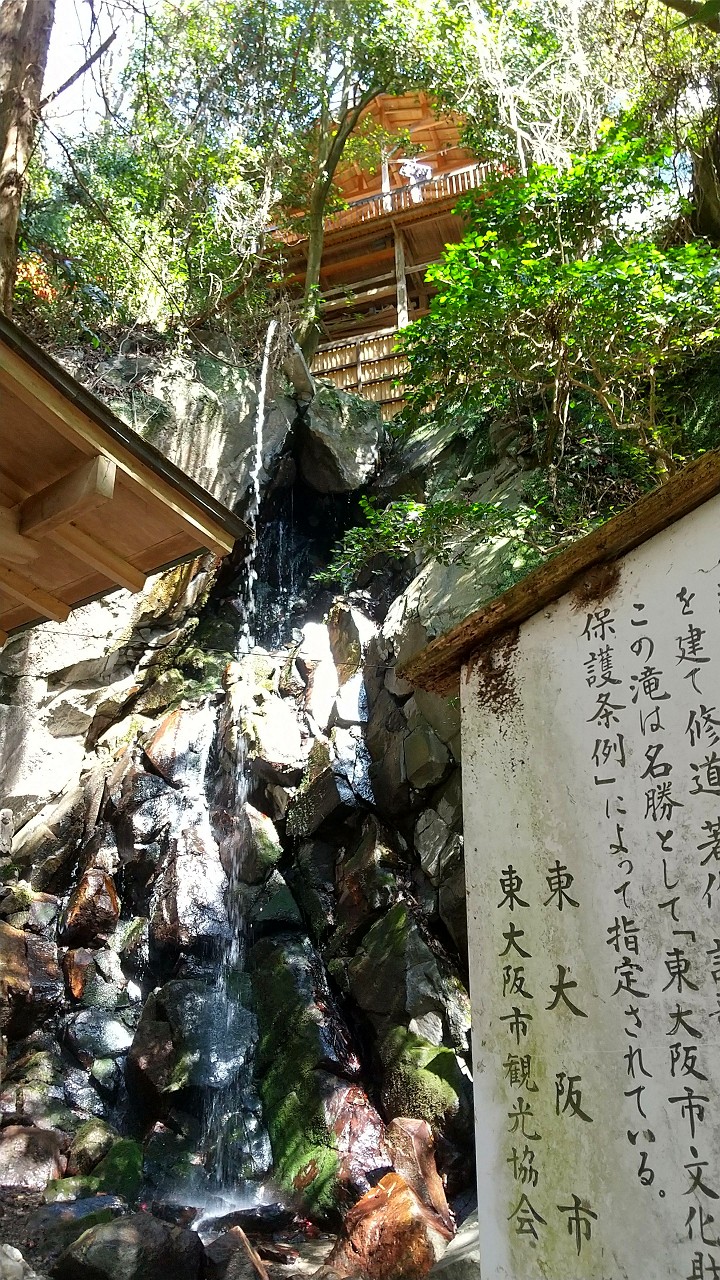 を建て修道 著作
この滝は名勝として「東大阪市文化財
保護条例」によって指定されている。
東大阪市
東大阪市観光協会